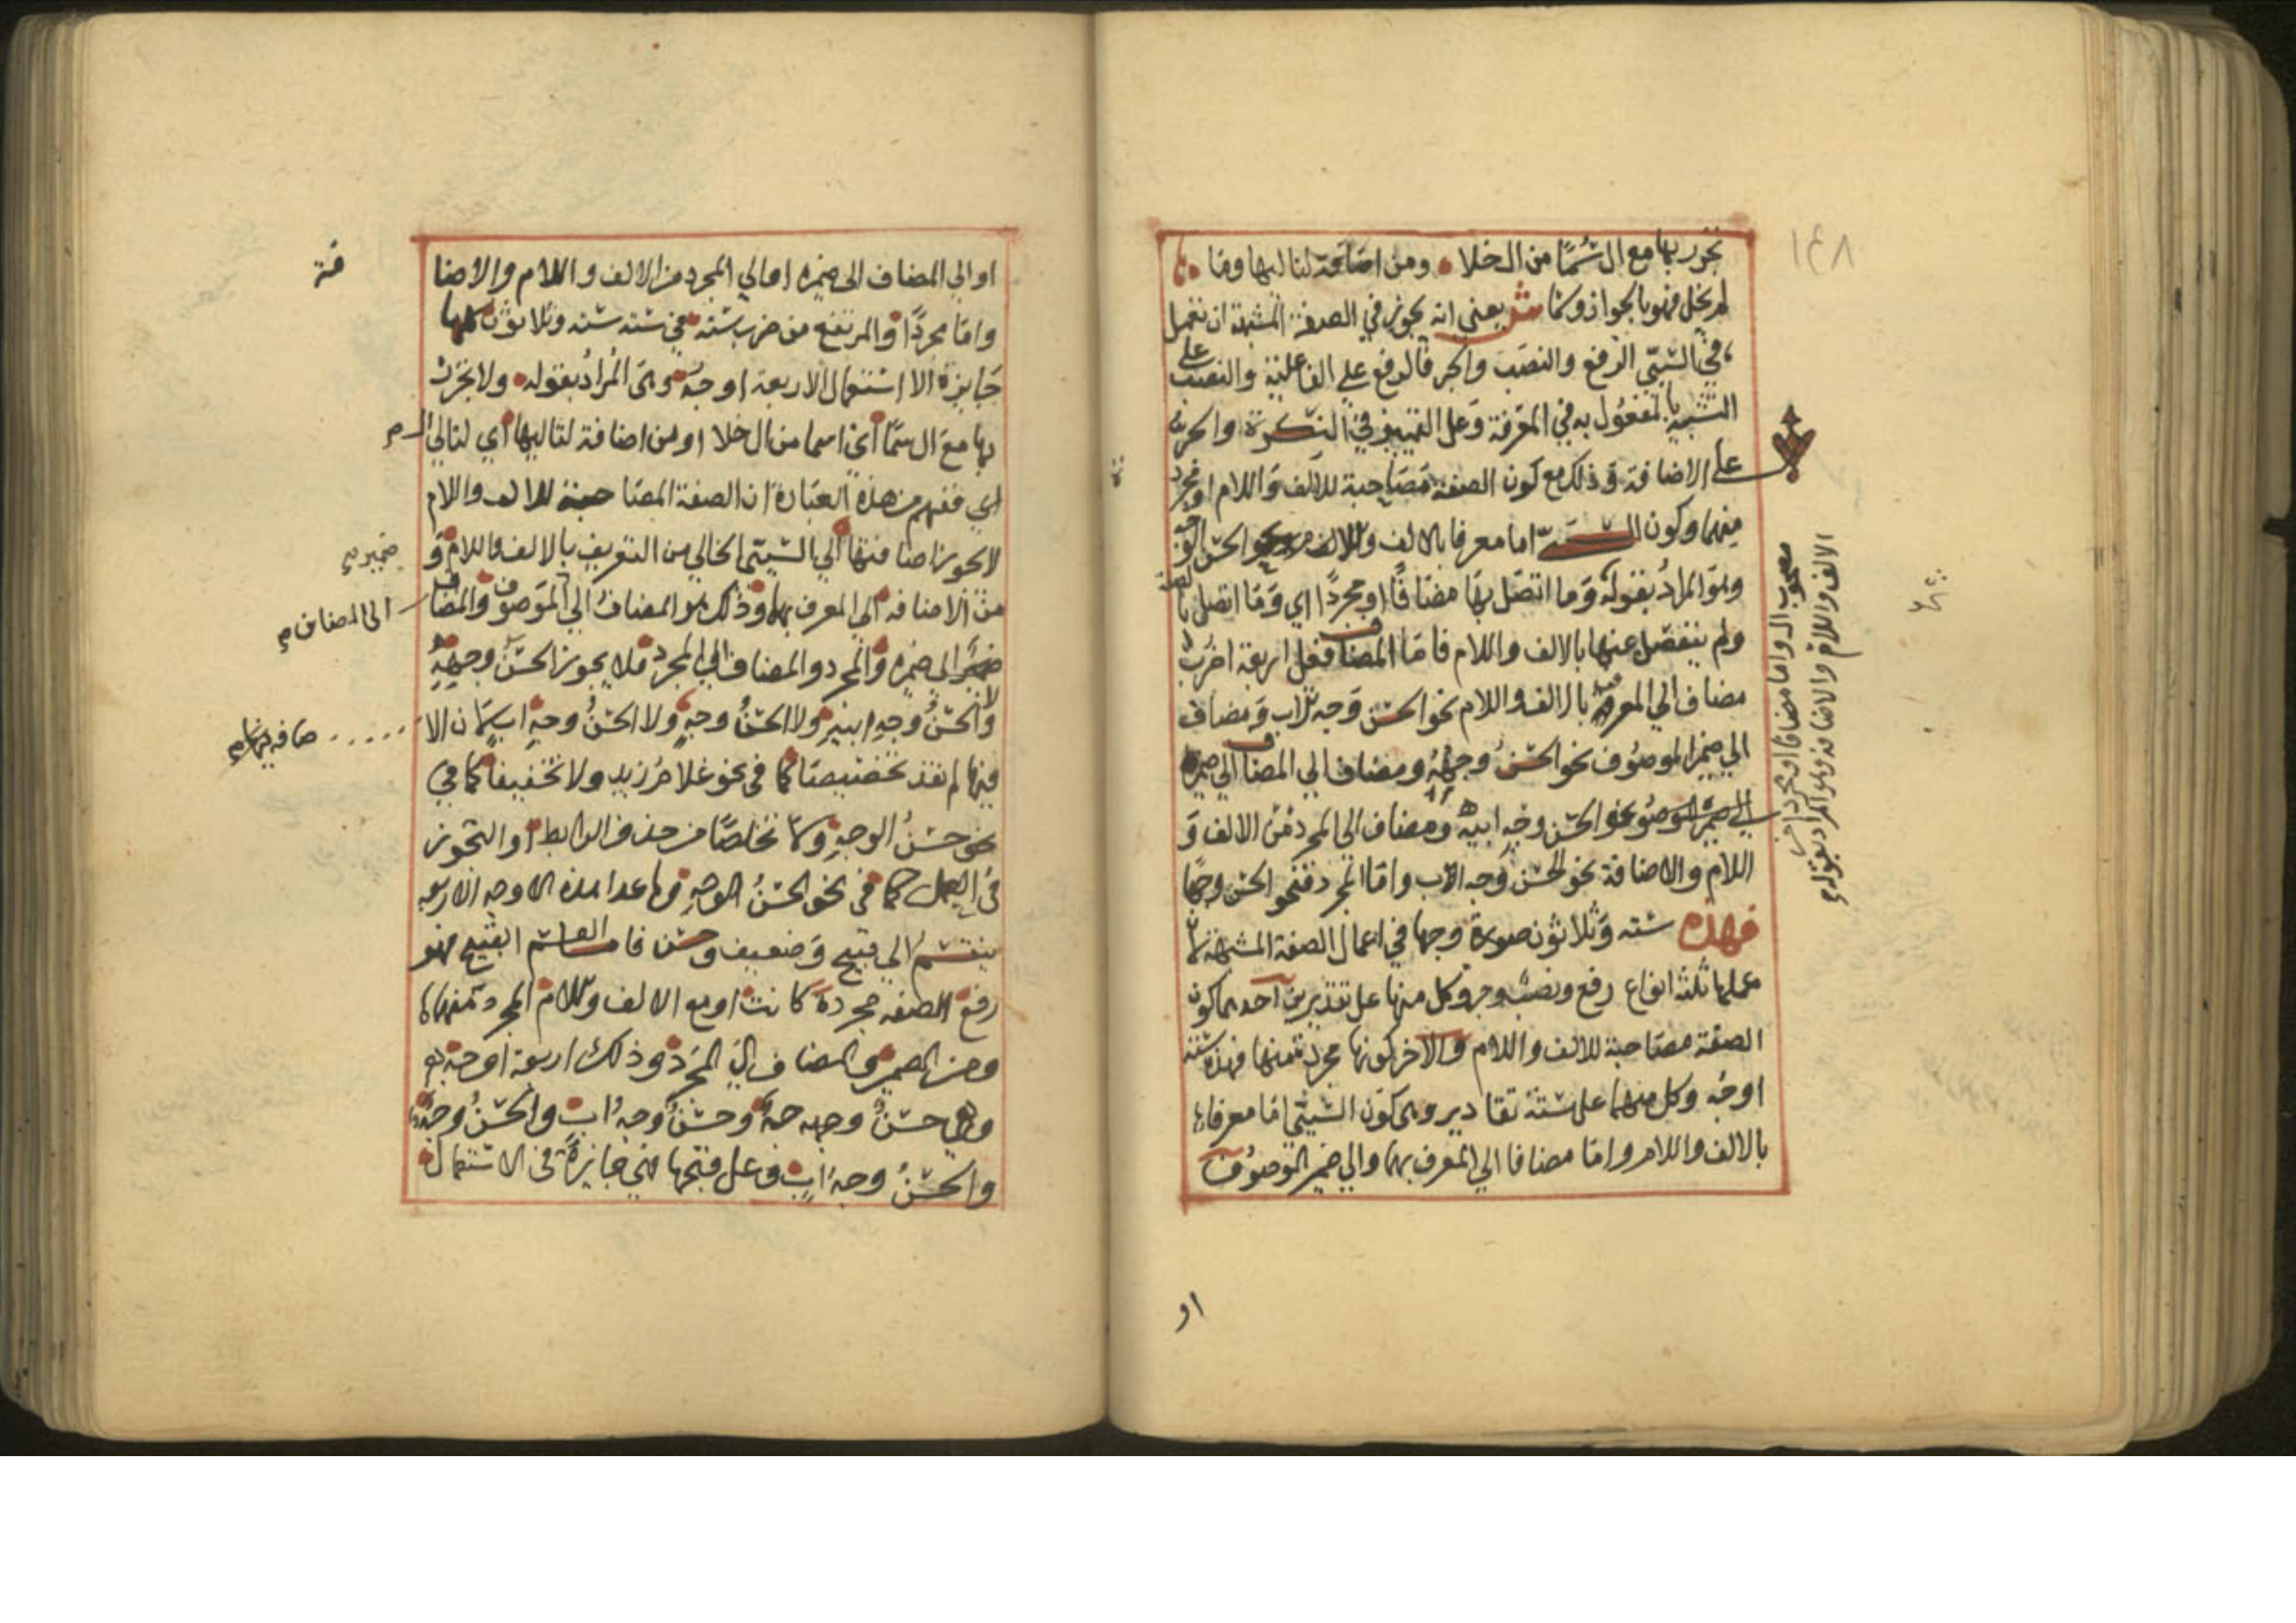 ١٤٨
تجرر بها مع ال سُمًا من ال خلا ومن اضافة لتاليها وما
لم يخل فهو بالجواز وسما ش يعني انه يجوز في الصفة المشبهة ان تعمل
في السببي الرفع والنصب والجر فالرفع على الفاعلية والنصب على
التشبيه بالمفعول به في المعرفة وعلى التمييز في النكرة والجر
على الاضافة وذلك مع كون الصفة مصاحبة للالف واللام او مجرد
منهما وكون السببي اما معرفا بالالف واللام نحو الحسن الوجه
وهو المراد بقوله وما اتصل بها مضافًا او مجردًا اي وما اتصل بالصفة
ولم ينفصل عنها بالالف واللام فاما المضاف فعلى اربعة اضرب
مضاف الي المعرف بالالف واللام نحو الحسن وجه الاب ومضاف
الي ضمير الموصوف نحو الحسن وجهه ومضاف الي المضاف الي ضميره
الي ضمير الموصوف نحو الحسن وجه ابيه ومضاف الى المجرد من الالف و
اللام والاضافة نحو الحسن وجه اب واما المجرد فنحو الحسن وجها
فهذه ستة وثلاثون صورة وجها في اعمال الصفة المشبهة لان
عملها ثلثة انواع رفع ونصب وجر وكل منها على تقديرين احدهما كون
الصفة مصاحبة للالف واللام والاخر كونها مجردة منها فهذه ستة
اوجه وكل منها على ستة تقادير وهي كون السببي اما معرفا
بالالف واللام واما مضافا الي المعرف بهما والي ضمير الموصوف
مصحوب ال واما مضافا او مجردا
الالف واللام والاضافة وهو المراد بقوله
او
او الي المضاف الى ضميره او الي المجرد من الالف واللام والاضا
فة
واما مجردًا والمرتفع من ضرب ستة في ستة ستة وثلاثون كلها
جايزة الا استعمال الاربعة اوجه وهي المراد بقوله ولا تجرر
بها مع ال سمًا أي اسما من ال خلا او من اضافة لتاليها أي لتالي
الي ففهم من هذه العبارة ان الصفة المصاحبة للالف واللام
لا يجوز اضافتها الي السببي الخالي من التعريف بالالف واللام و
من الاضافة الي المعرف بهما وذلك هو المضاف الي الموصوف والمضاف
ضمير
الى المضاف
الى ضميره والمجرد والمضاف الي المجرد فلا يجوز الحسن وجهه
ولا الحسنُ وجهِ ابيه ولا الحسنُ وجهٍ ولا الحسنُ وجهِ ابٍ لان الا
ضافة فيها
فيها لم تفد تخصيصا كما في نحو غلام زيد ولا تخفيفا كما في
نحو حسنُ الوجهِ ولا تخلصًا من حذف الرابط او التجوز
في العمل كما في نحو الحسنُ الوجهِ وما عدا هذه الاوجه الاربعه
ينقسم الي قبيح وضعيف وحسن فاما القسم القبيح فهو
رفع الصفة مجردة كانت او مع الالف واللام المجرد منهما
ومن الضمير والمضاف الي المجرد وذلك اربعة اوجه
وهي حسنٌ وجهٌ وحسنٌ وجهُ ابٍ والحسنُ وجهٌ
والحسنُ وجهُ ابٍ وعلى قبحها فهي جايزة في الاستعمال